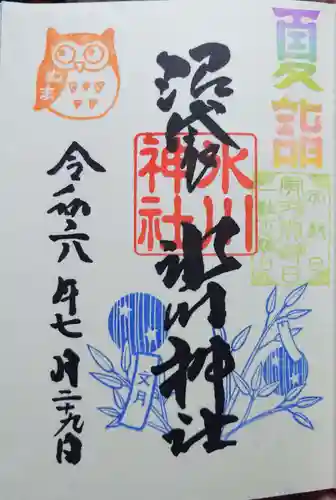 夏詣
沼袋
氷川神社
氷川
神社
令和六年七月二十九日
文月